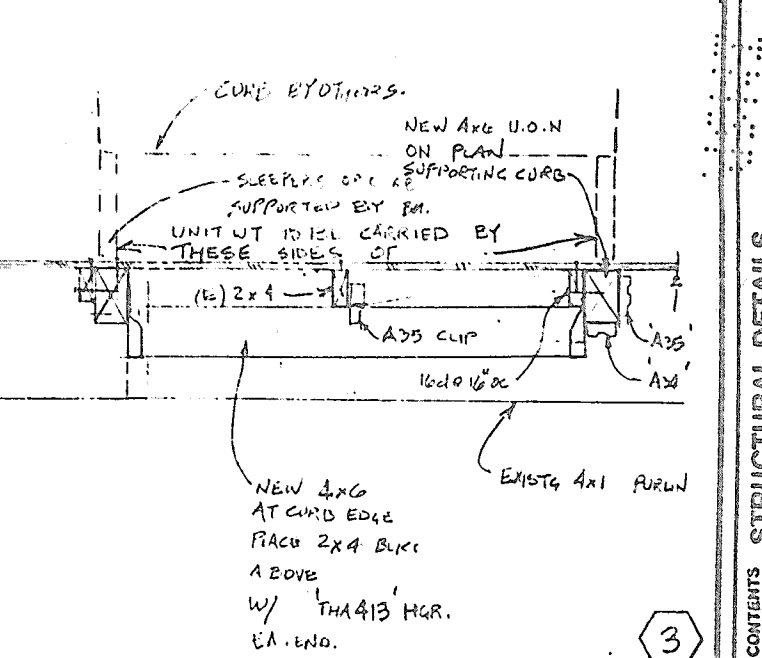 CURB BY OTHERS.
NEW 4x6 U.O.N
ON PLAN
SUPPORTING CURB
SLEEPERS OR
SUPPORTED BY BM.
UNIT WT TO BE CARRIED BY
THESE SIDES OF
(E) 2x4
A35 CLIP
'A35'
'A34'
16d@16"oc
EXIST'G 4x1 PURLIN
NEW 4x6
AT CURB EDGE
PLACE 2x4 BLKG
ABOVE
W/ 'THA413' HGR.
EA. END.
3
CONTENTS STRUCTURAL DETAILS